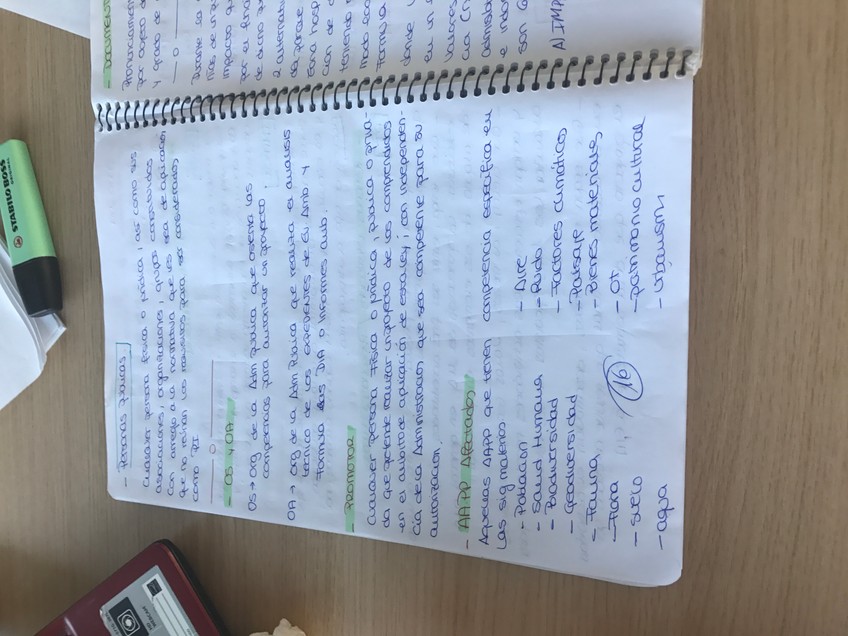 - Personas públicas
Cualquier persona física o jurídica, así como sus
asociaciones, organizaciones, grupos constituidos
con arreglo a la normativa que les sea de aplicación
que no reúnan los requisitos para ser considerados
como PI.
- OS y OA
OS → org de la Adm pública que ostenta las
competencias para autorizar un proyecto.
OA → Org de la Adm Pública que realiza el análisis
técnico de los expedientes de Ev. Amb y
formula las DIA o Informes Amb.
- PROMOTOR
Cualquier persona física o jrídica, pública o priva-
da que pretende realizar un proyecto de los comprendidos
en el ámbito de aplicación de esta ley, con independen-
cia de la Administración que sea competente para su
autorización.
- AAPP Afectadas
Aquellas AAPP que tienen competencia específica en
las sig materias
- Población
- Salud Humana
- Biodiversidad
- Geodiversidad
- Fauna
- Flora
- suelo
- agua
- Aire
- Ruido
- Factores climáticos
- Paisaje
- Bienes materiales
- OT
- patrimonio cultural
- Urbanism
16
- DOCUMENTO
Pronunciamiento
por objeto de
y grado de
Durante la
impacto qu
por el fina
de dicho
2 alternativ
da porque
Zona hosp
ción de
teniendo
modo
Formula
donde
en un
valores
cia (
admisible
e indo
son
A) IMP
STABILO BOSS